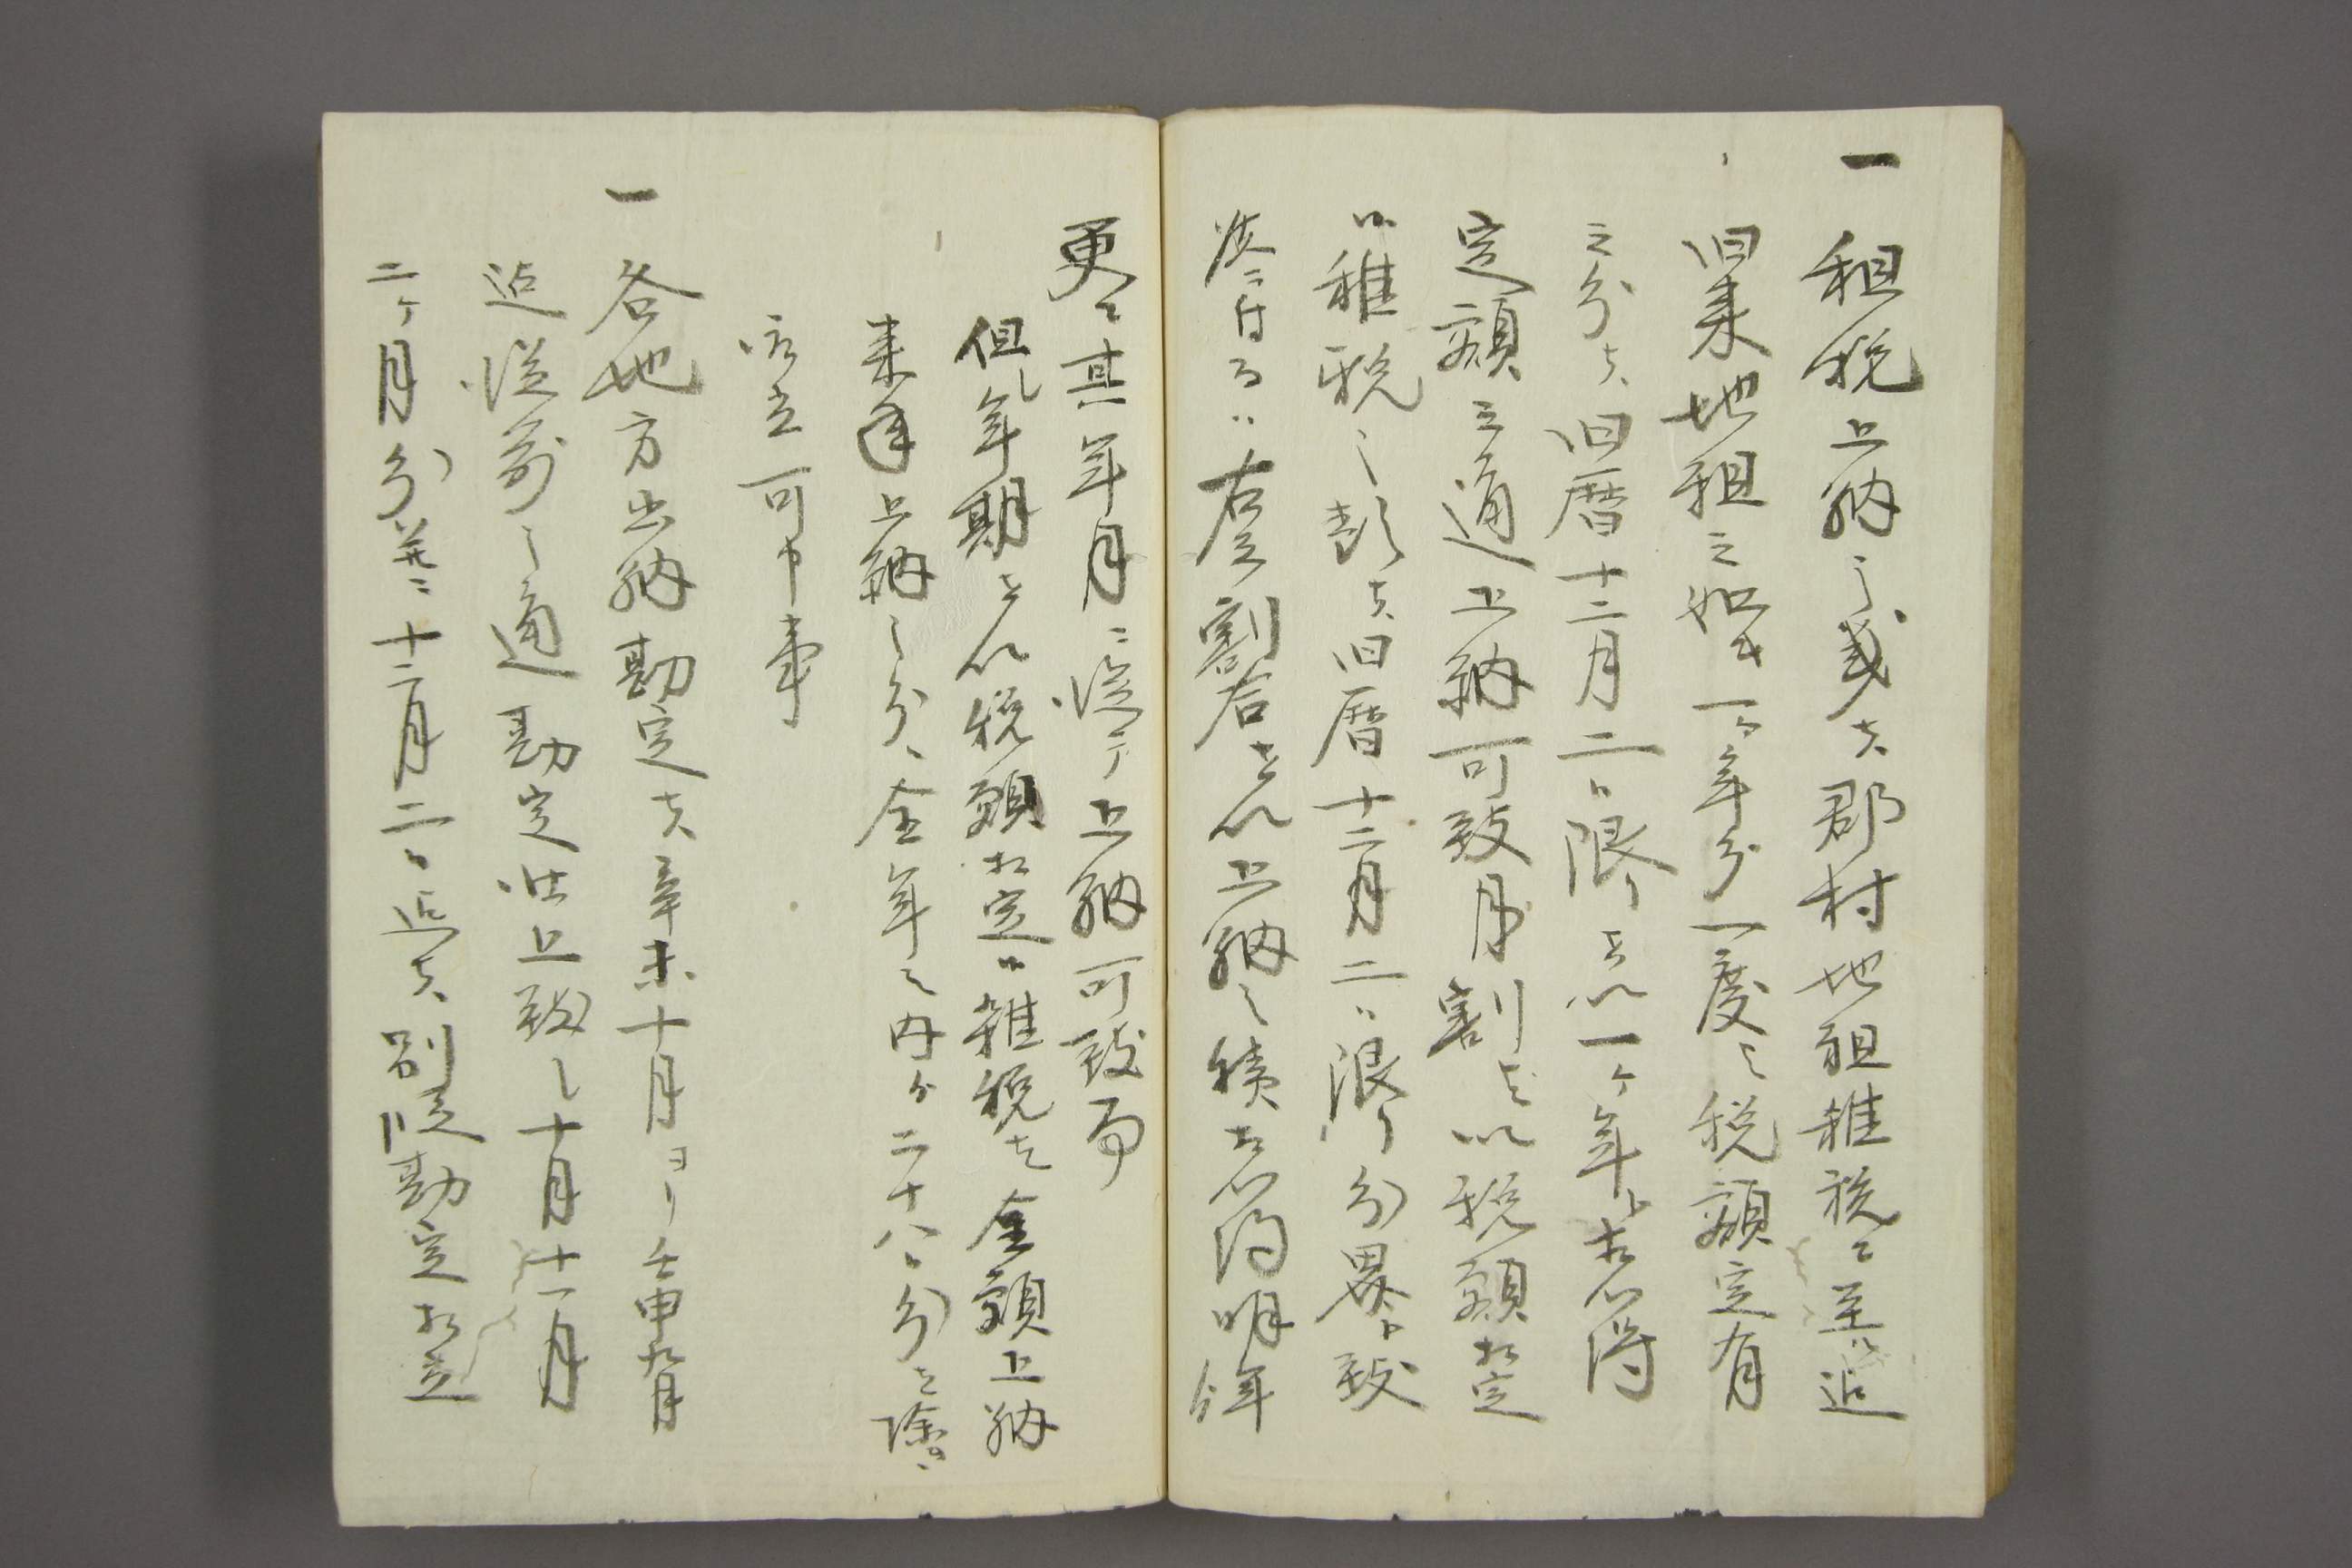 一 租税上納之義者郡村地租雑税ニ至ル迄
旧来地租之如キ一ヶ年分一度之税額定有
之分者旧暦十二月二日限ヲ以一ヶ年ト相心得
定額之通上納可致月割ヲ以税額相定
候雑税之類者旧暦十二月二日限分界ト致
候ニ付右之割合ヲ以上納之積相心得明年
更ニ其年月ニ従ヒ上納可致事
但年期ヲ以税額相定候雑税ハ全額上納
来年上納之分ハ全年之内ヨリ二十八日分ヲ除キ
取立可申事
一 各地方出納勘定者辛未十月ヨリ壬申九月
迄従前之通勘定仕上致シ十月十一月
二ヶ月分并ニ十二月二日迄者別段勘定相立